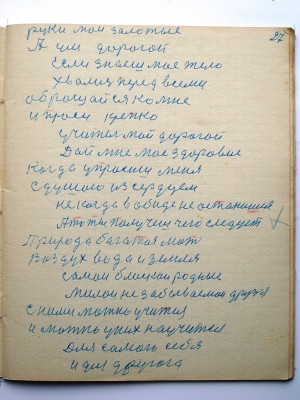 руки мои золотые
27
А им дорогой
Если знаеш мое тело
Хвалиш перед всеми
обращайся ко мне
и проси крепко
учитель мой дорогой
Дай мне мое здоровие
Когда упросиш меня
С душою и сердцем
не когда в обиде не останишся
А то ты получиш чего следует
Природа багатая мат
Воздух вода и земля
самои близкаи родные
милаи не забываемаи друзя
С ними можно учится
и можно у них научится
Для самого себя
и для другога